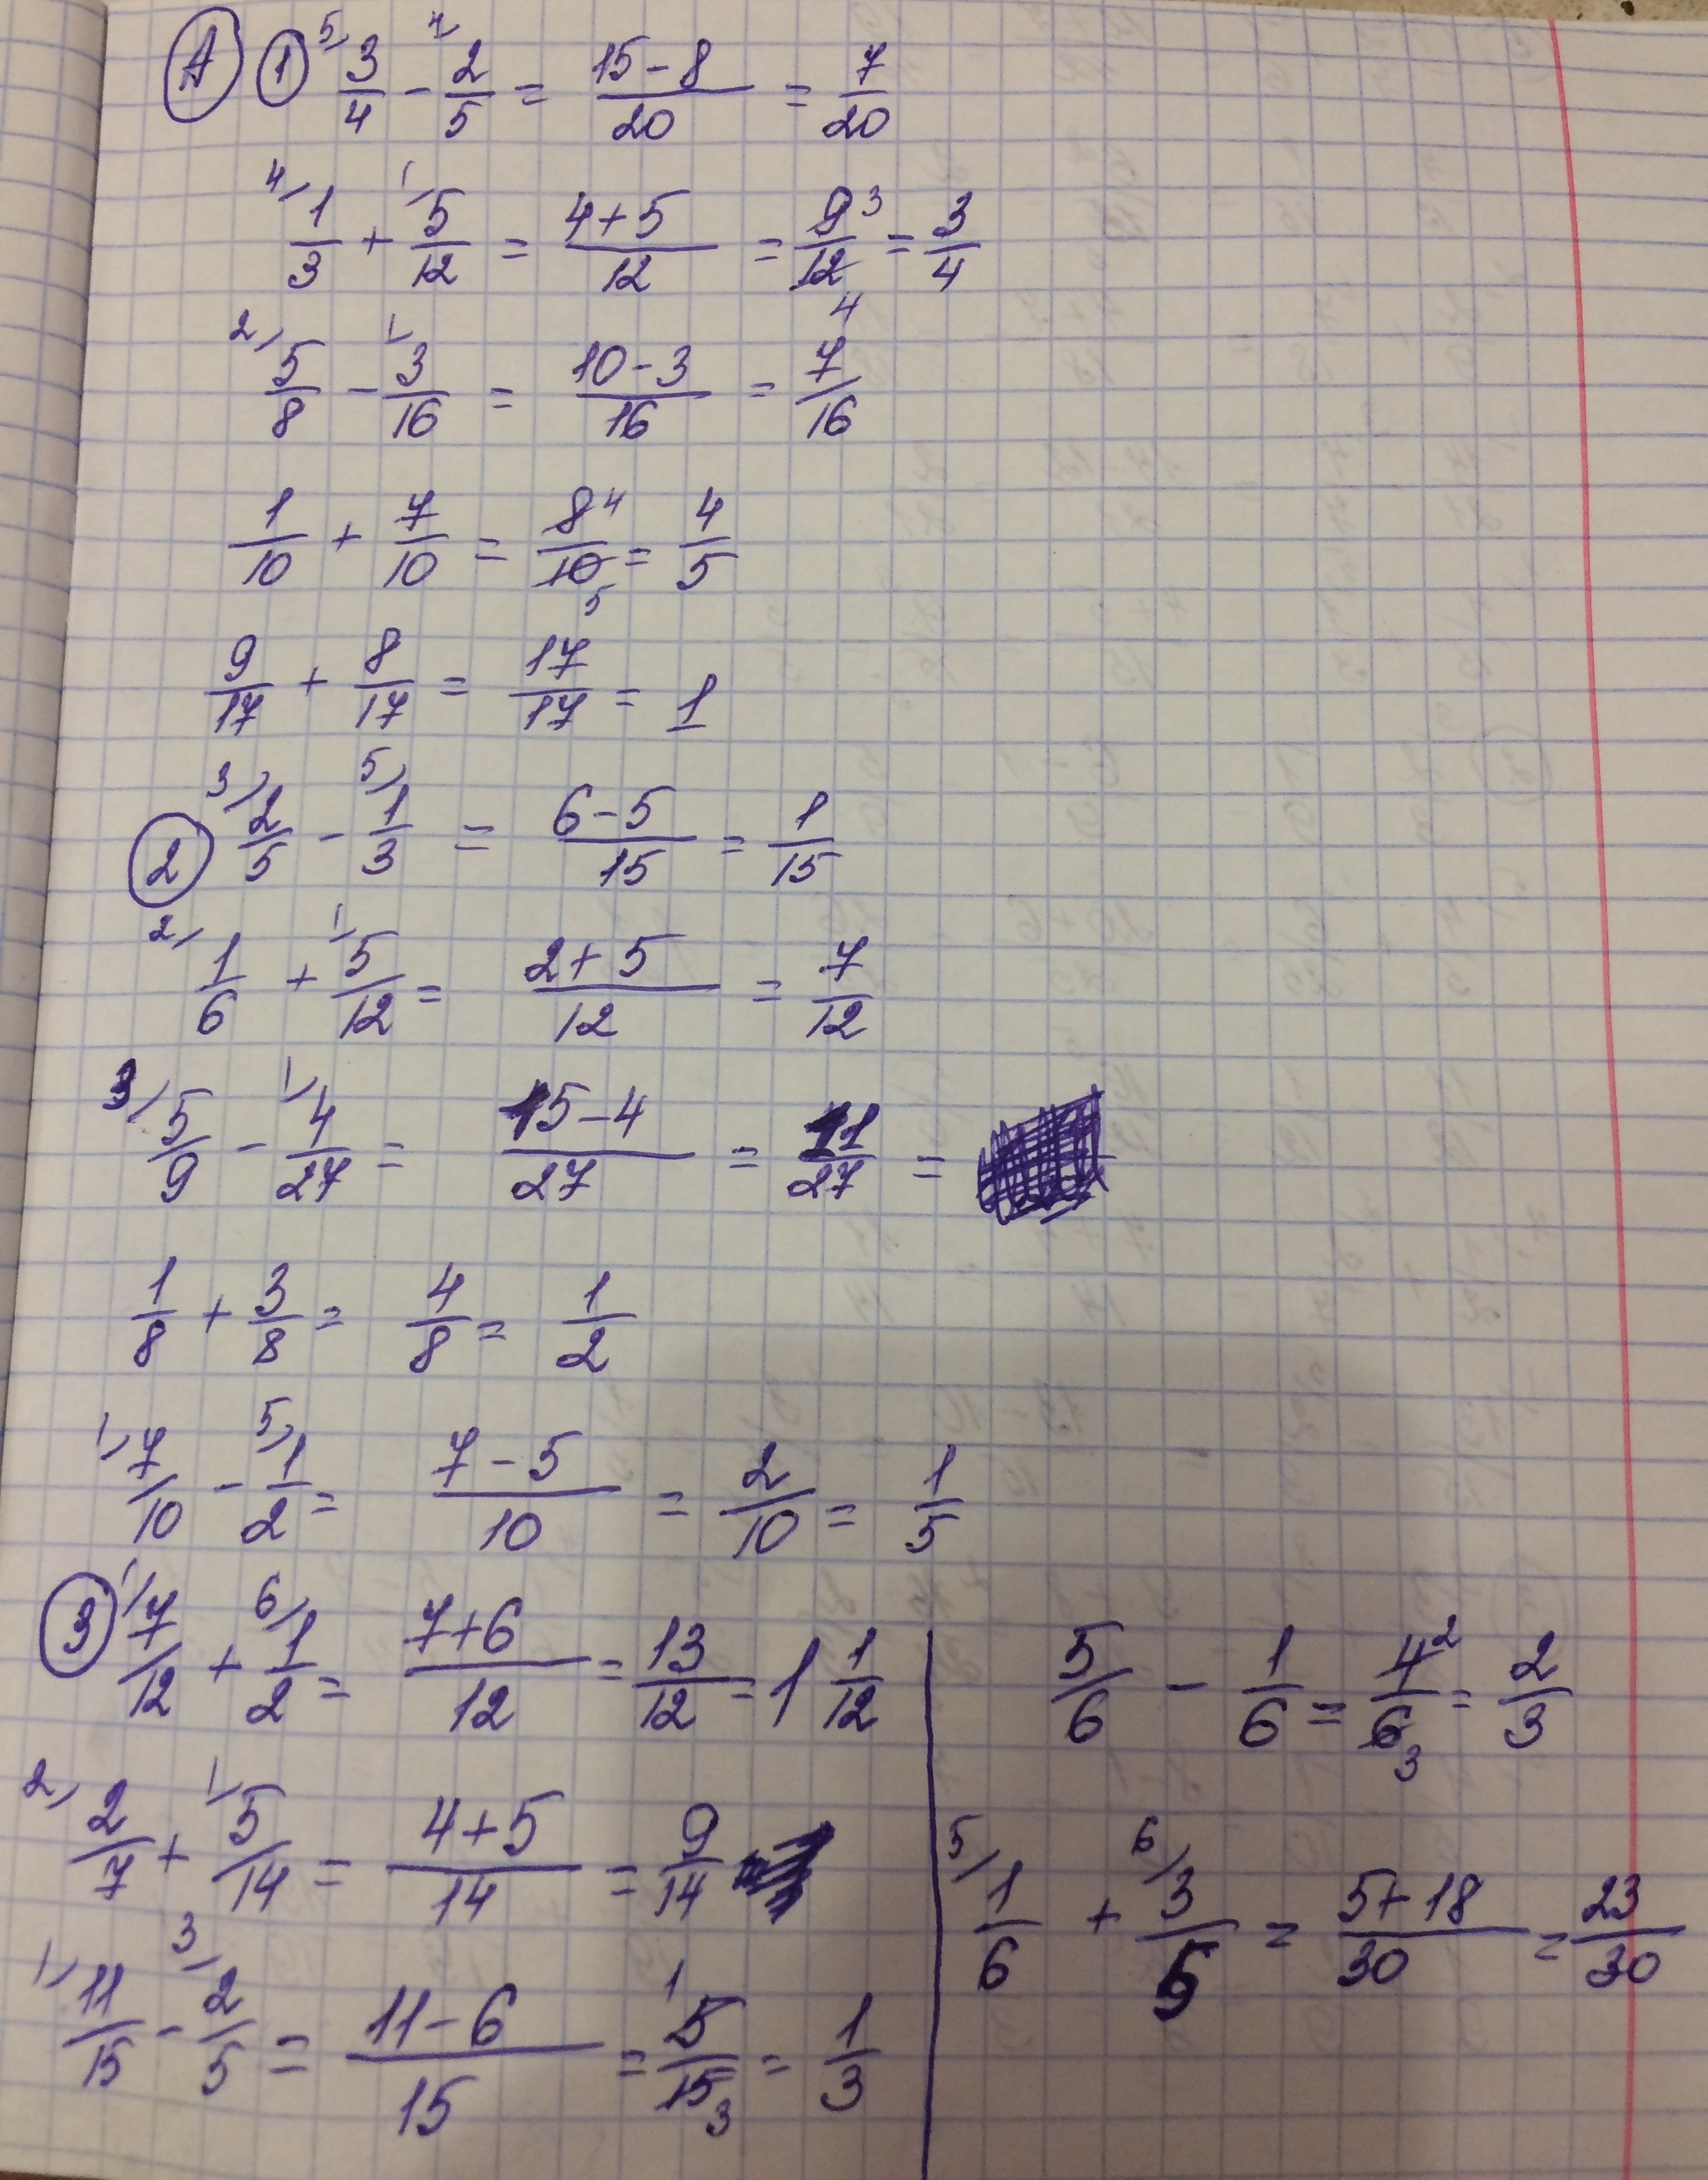 А ① 5/ 3/4 - 4/ 2/5 = (15-8)/20 = 7/20
4/ 1/3 + 1/ 5/12 = (4+5)/12 = 9³/12₄ = 3/4
2/ 5/8 - 1/ 3/16 = (10-3)/16 = 7/16
1/10 + 7/10 = 8⁴/10₅ = 4/5
9/17 + 8/17 = 17/17 = 1
② 3/ 2/5 - 5/ 1/3 = (6-5)/15 = 1/15
2/ 1/6 + 1/ 5/12 = (2+5)/12 = 7/12
3/ 5/9 - 1/ 4/27 = (15-4)/27 = 11/27 =
1/8 + 3/8 = 4/8 = 1/2
1/ 7/10 - 5/ 1/2 = (7-5)/10 = 2/10 = 1/5
③ 1/ 7/12 + 6/ 1/2 = (7+6)/12 = 13/12 = 1 1/12
2/ 2/7 + 1/ 5/14 = (4+5)/14 = 9/14
1/ 11/15 - 3/ 2/5 = (11-6)/15 = ¹5/15₃ = 1/3
5/6 - 1/6 = 4²/6₃ = 2/3
5/ 1/6 + 6/ 3/5 = (5+18)/30 = 23/30